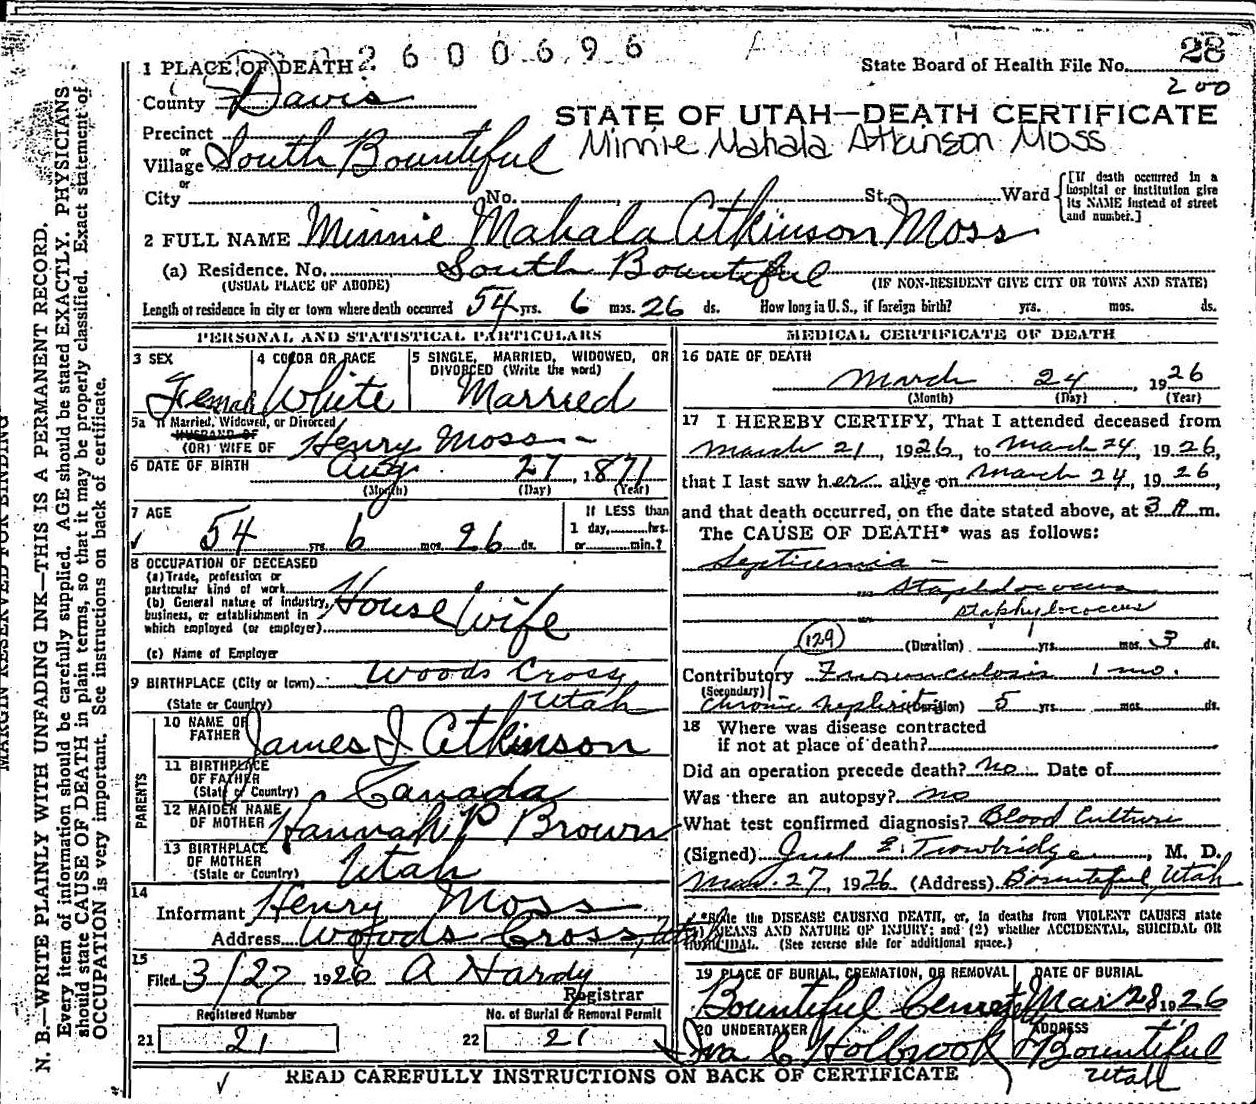 MARGIN RESERVED FOR BINDING
N. B.—WRITE PLAINLY WITH UNFADING INK—THIS IS A PERMANENT RECORD.
Every item of information should be carefully supplied. AGE should be stated EXACTLY. PHYSICIANS
should state CAUSE OF DEATH in plain terms, so that it may be properly classified. Exact statement of
OCCUPATION is very important. See instructions on back of certificate.
2600696
State Board of Health File No. 28
200
1 PLACE OF DEATH
County Davis
STATE OF UTAH—DEATH CERTIFICATE
Minnie Mahala Atkinson Moss
Precinct
or
Village South Bountiful
or
City No. St. Ward
[If death occurred in a
hospital or institution give
its NAME instead of street
and number.]
2 FULL NAME Minnie Mahala Atkinson Moss
(a) Residence. No. South Bountiful
(USUAL PLACE OF ABODE) (IF NON-RESIDENT GIVE CITY OR TOWN AND STATE)
Length of residence in city or town where death occurred 54 yrs. 6 mos. 26 ds. How long in U. S., if foreign birth? yrs. mos. ds.
PERSONAL AND STATISTICAL PARTICULARS
3 SEX Female
4 COLOR OR RACE White
5 SINGLE, MARRIED, WIDOWED, OR
DIVORCED (Write the word)
Married
5a If Married, Widowed, or Divorced
HUSBAND OF
(OR) WIFE OF Henry Moss
6 DATE OF BIRTH Aug 27, 1871
(Month) (Day) (Year)
7 AGE 54 yrs. 6 mos. 26 ds.
If LESS than
1 day, hrs.
or min.?
8 OCCUPATION OF DECEASED
(a) Trade, profession or
particular kind of work
(b) General nature of industry,
business, or establishment in
which employed (or employer)
House Wife
(c) Name of Employer
9 BIRTHPLACE (City or town) Woods Cross
(State or Country) Utah
PARENTS
10 NAME OF
FATHER James J Atkinson
11 BIRTHPLACE
OF FATHER
(State or Country) Canada
12 MAIDEN NAME
OF MOTHER Hannah P Brown
13 BIRTHPLACE
OF MOTHER
(State or Country) Utah
14
Informant Henry Moss
Address Woods Cross, Utah
15
Filed 3/27 1926 A Hardy
Registrar
Registered Number
21 21
No. of Burial or Removal Permit
22 21
MEDICAL CERTIFICATE OF DEATH
16 DATE OF DEATH
March 24, 1926
(Month) (Day) (Year)
17 I HEREBY CERTIFY, That I attended deceased from
March 21, 1926, to March 24, 1926,
that I last saw her alive on March 24, 1926,
and that death occurred, on the date stated above, at 3 m.
The CAUSE OF DEATH* was as follows:
Septicemia —
Staphlococcus
staphylococcus
129 (Duration) yrs. mos. 3 ds.
Contributory Furunculosis 1 mo.
(Secondary)
Chronic Nephritis (Duration) 5 yrs. mos. ds.
18 Where was disease contracted
if not at place of death?
Did an operation precede death? no Date of
Was there an autopsy? no
What test confirmed diagnosis? Blood Culture
(Signed) E. Trowbridge, M. D.
Mar. 27, 1926 (Address) Bountiful, Utah
*State the DISEASE CAUSING DEATH, or, in deaths from VIOLENT CAUSES state
(1) MEANS AND NATURE OF INJURY; and (2) whether ACCIDENTAL, SUICIDAL OR
HOMICIDAL. (See reverse side for additional space.)
19 PLACE OF BURIAL, CREMATION, OR REMOVAL
Bountiful Cemetery
DATE OF BURIAL
Mar 28 1926
20 UNDERTAKER
Ira C Holbrook
ADDRESS
Bountiful
Utah
READ CAREFULLY INSTRUCTIONS ON BACK OF CERTIFICATE